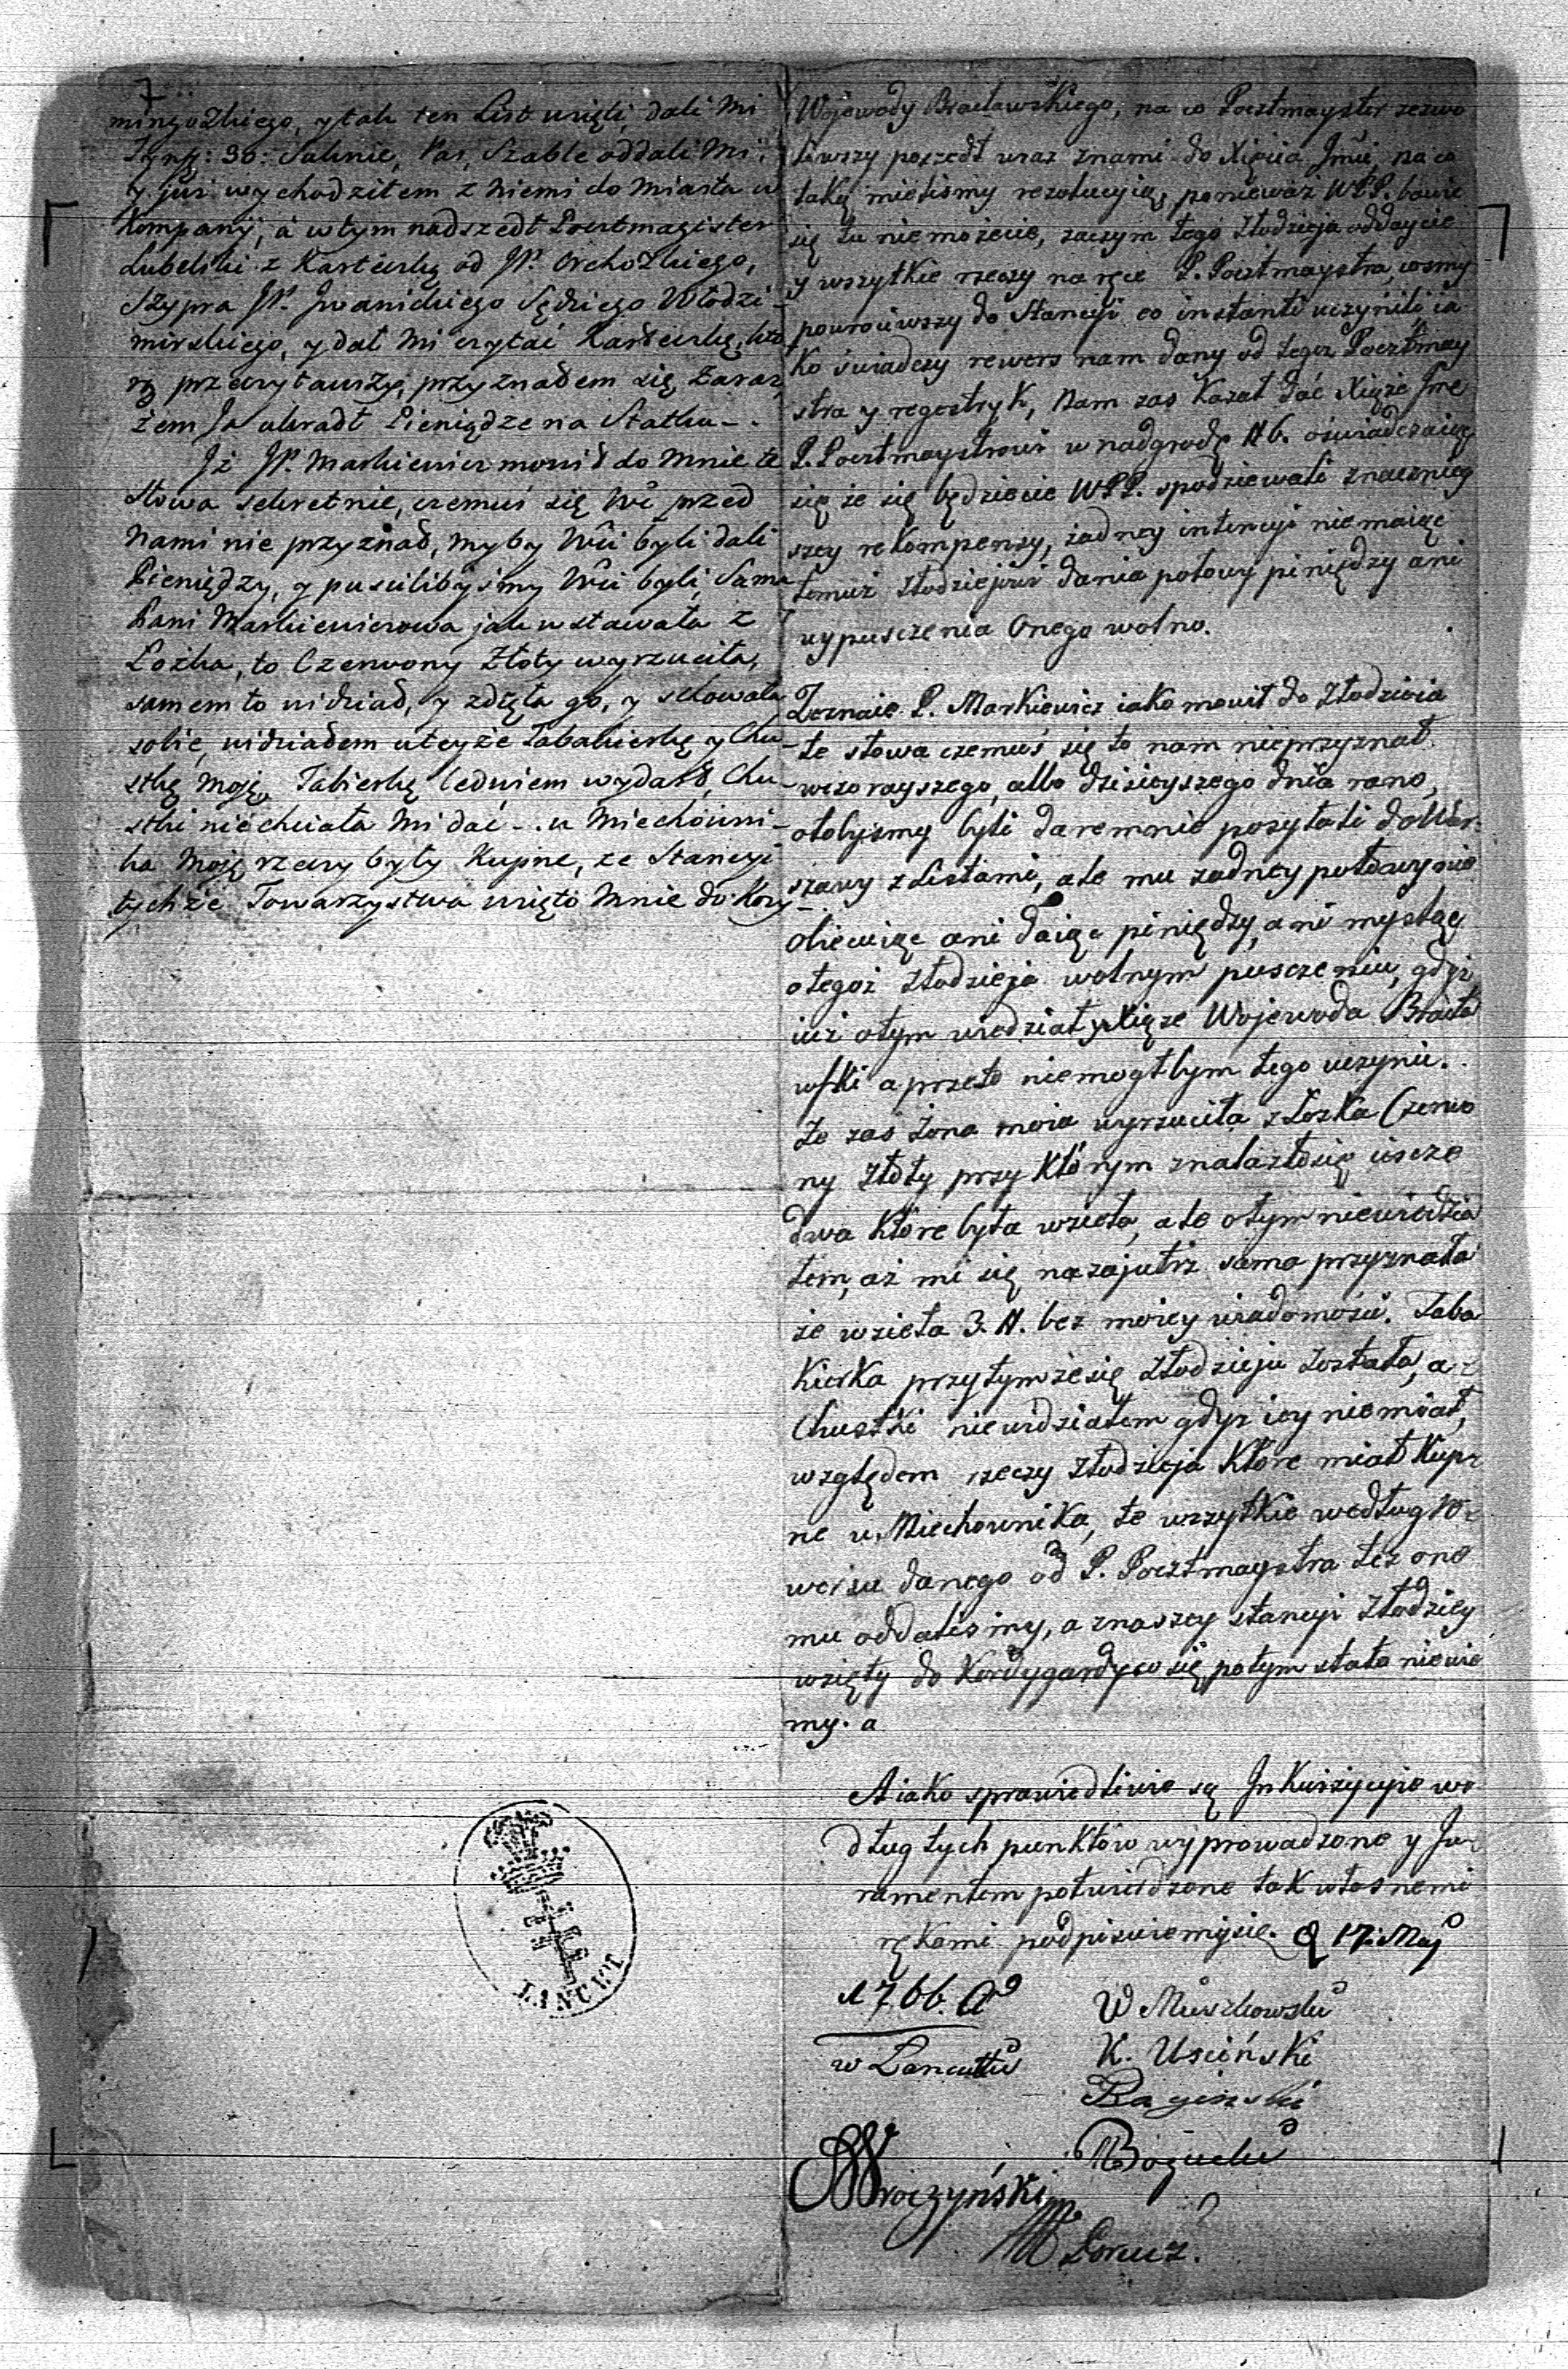 7
mingozkiego, y tak ten List wzięli, dali Mi
Tynf: 30: Suknie, Pas, Szable oddali Mi,
y już wychodziłem z Niemi do Miasta w
Kompany, á w tym nadszedł Poczmagister
Lubelski z Karteczką od JP. Orchozkiego,
Szypra JP. Jwanickiego Sędziego Włodzi-
mirskiego, y dał Mi czytać Karteczkę, któ
rą przeczytawszy, przyznałem się zaraz
żem Ja ukradł Pieniądze na Statku -.
Jż JP. Markiewicz mowił do Mnie te
słowa sekretnie, czemuś się Wć przed
Nami nie przyznał, my by Wći byli dali
Pieniędzy, y puscilibyśmy Wći byli, Sama
Pani Markiewiczowa jak wstawała z
Łożka, to Czerwony Złoty wyrzuciła,
samem to widział, y zdięła go, y schowała
sobie, widziałem u teyże Tabakierkę y Chu-
stkę Moję, Tabierkę ledwiem wydarł, Chu-
stki niechciała Mi dać -. u Miechowni-
ka Moję rzeczy były Kupne, ze Stancyi
tychże Towarzystwa wzięto Mnie do Kozy -
Wojewody Bracławskiego, na co Pocztmayster zezwo
liwszy poszedł wraz znami do Xięcia Jmći, na co
taką mieliśmy rezolucyią, ponieważ WPP. bawić
się tu niemożecie, zaczym tego złodzieja oddaycie
y wszytkie rzeczy na ręce P. Pocztmaystra, cosmy
powrociwszy do Stancyi co instanti uczynili ia
ko świadczy rewers nam dany od tegoz Pocztmay
stra y regestryk, Nam zas Kazał dać Xiąże Jme
P. Pocztmaystrowi w nadgrodę # 6. oświadczaiąc
się że się będziecie WPP. spodziewali znaczniey
szey rekompensy, żadney intencyi niemaiąc
temuż złodziejowi dania połowy piniędzy ani
wypuszczenia Onego wolno.
Zeznaie P. Markiewicz iako mowił do Złodzieia
te słowa czemuś się to nam nieprzyznał
wczorayszego, albo dzisieyszego dnia rano,
otobysmy byli daremnie posyłali do War-
szawy z Listami, ale mu zadney połowy nie
obiecuiąc ani daiąc piniędzy, ani mysląc
otegoż złodzieja wolnym pusczeniu, gdyż
iuż otym wiedział y Xiąże Wojewoda Bracła
wski a przeto niemogłbym tego uczynić.
że zaś żona moia wyrzuciła z Łozka Czerwo
ny złoty przy Którym znalazł się iescze
dwa Które była wzieła, ale otym niewiedzia
łem, aż mi się nazajutrz sama przyznała
że wzieła 3. #. bez moiey wiadomości. Taba
Kierka przytymżesię złodzieju została, a
Chustki niewidziałem gdyz iey niemiał,
względem rzeczy złodzieja Które miał Kup-
ne u Miechownika, te wszytkie według re-
wersu danego od P. Pocztmaystra też one
mu oddalismy, a znaszey stancyi złodziey
wzięty do Kordygardy co się potym stało niewie
my. a
A iako sprawiedliwie są Jnkwizycyie we
dług tych punktów wyprowadzone y Ju-
ramentem potwierdzone tak własnemi
rękami podpisuiemysię. D 17. Maj
1766. Ao
w Łancucie
W Muszkowski
K. Usciński
Raginski
MBogucki
Wroczyński
Lorenz.
ŁAŃCUT